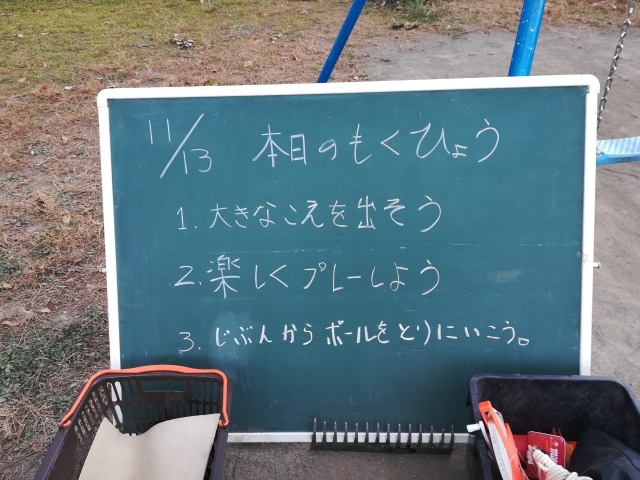 11/13 本日のもくひょう
1. 大きなこえを出そう
2. 楽しくプレーしよう
3. じぶんからボールをとりにいこう。